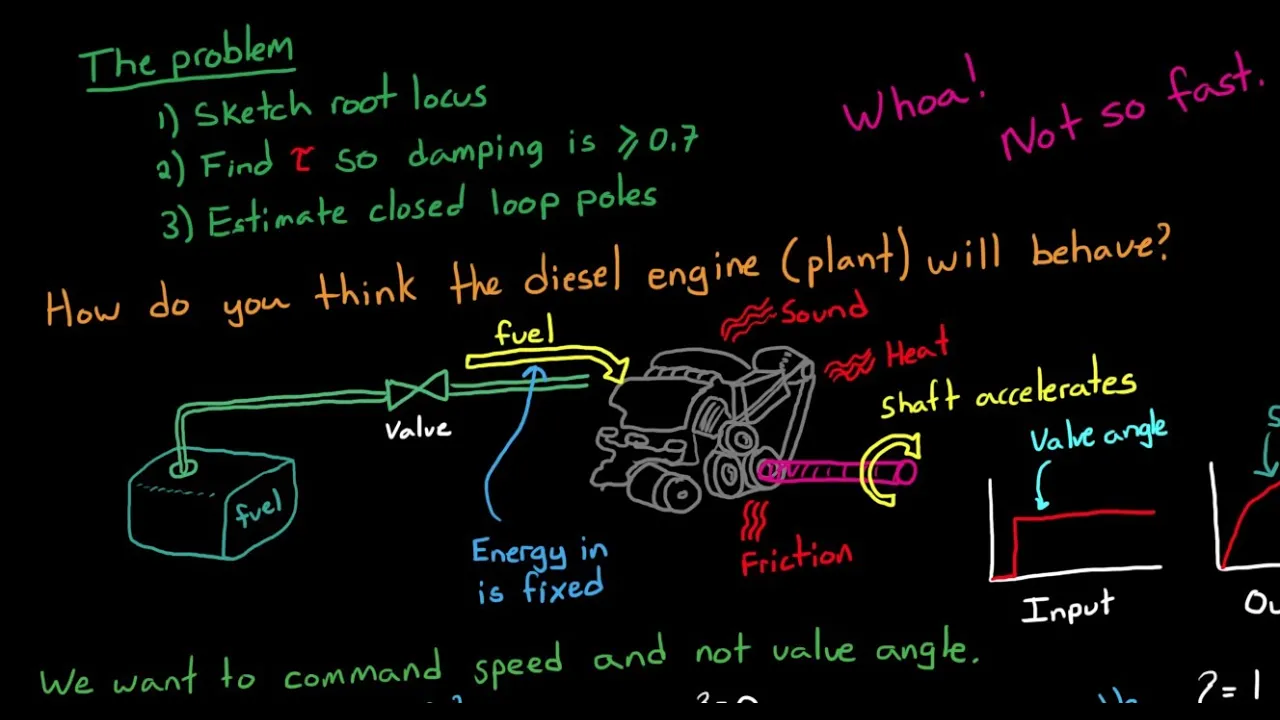 The problem
1) Sketch root locus
2) Find τ so damping is ≥ 0.7
3) Estimate closed loop poles
Whoa!
Not so fast.
How do you think the diesel engine (plant) will behave?
fuel
Sound
Heat
shaft accelerates
Valve
Valve angle
fuel
Energy in
is fixed
Friction
Input
We want to command speed and not valve angle.
? = 1